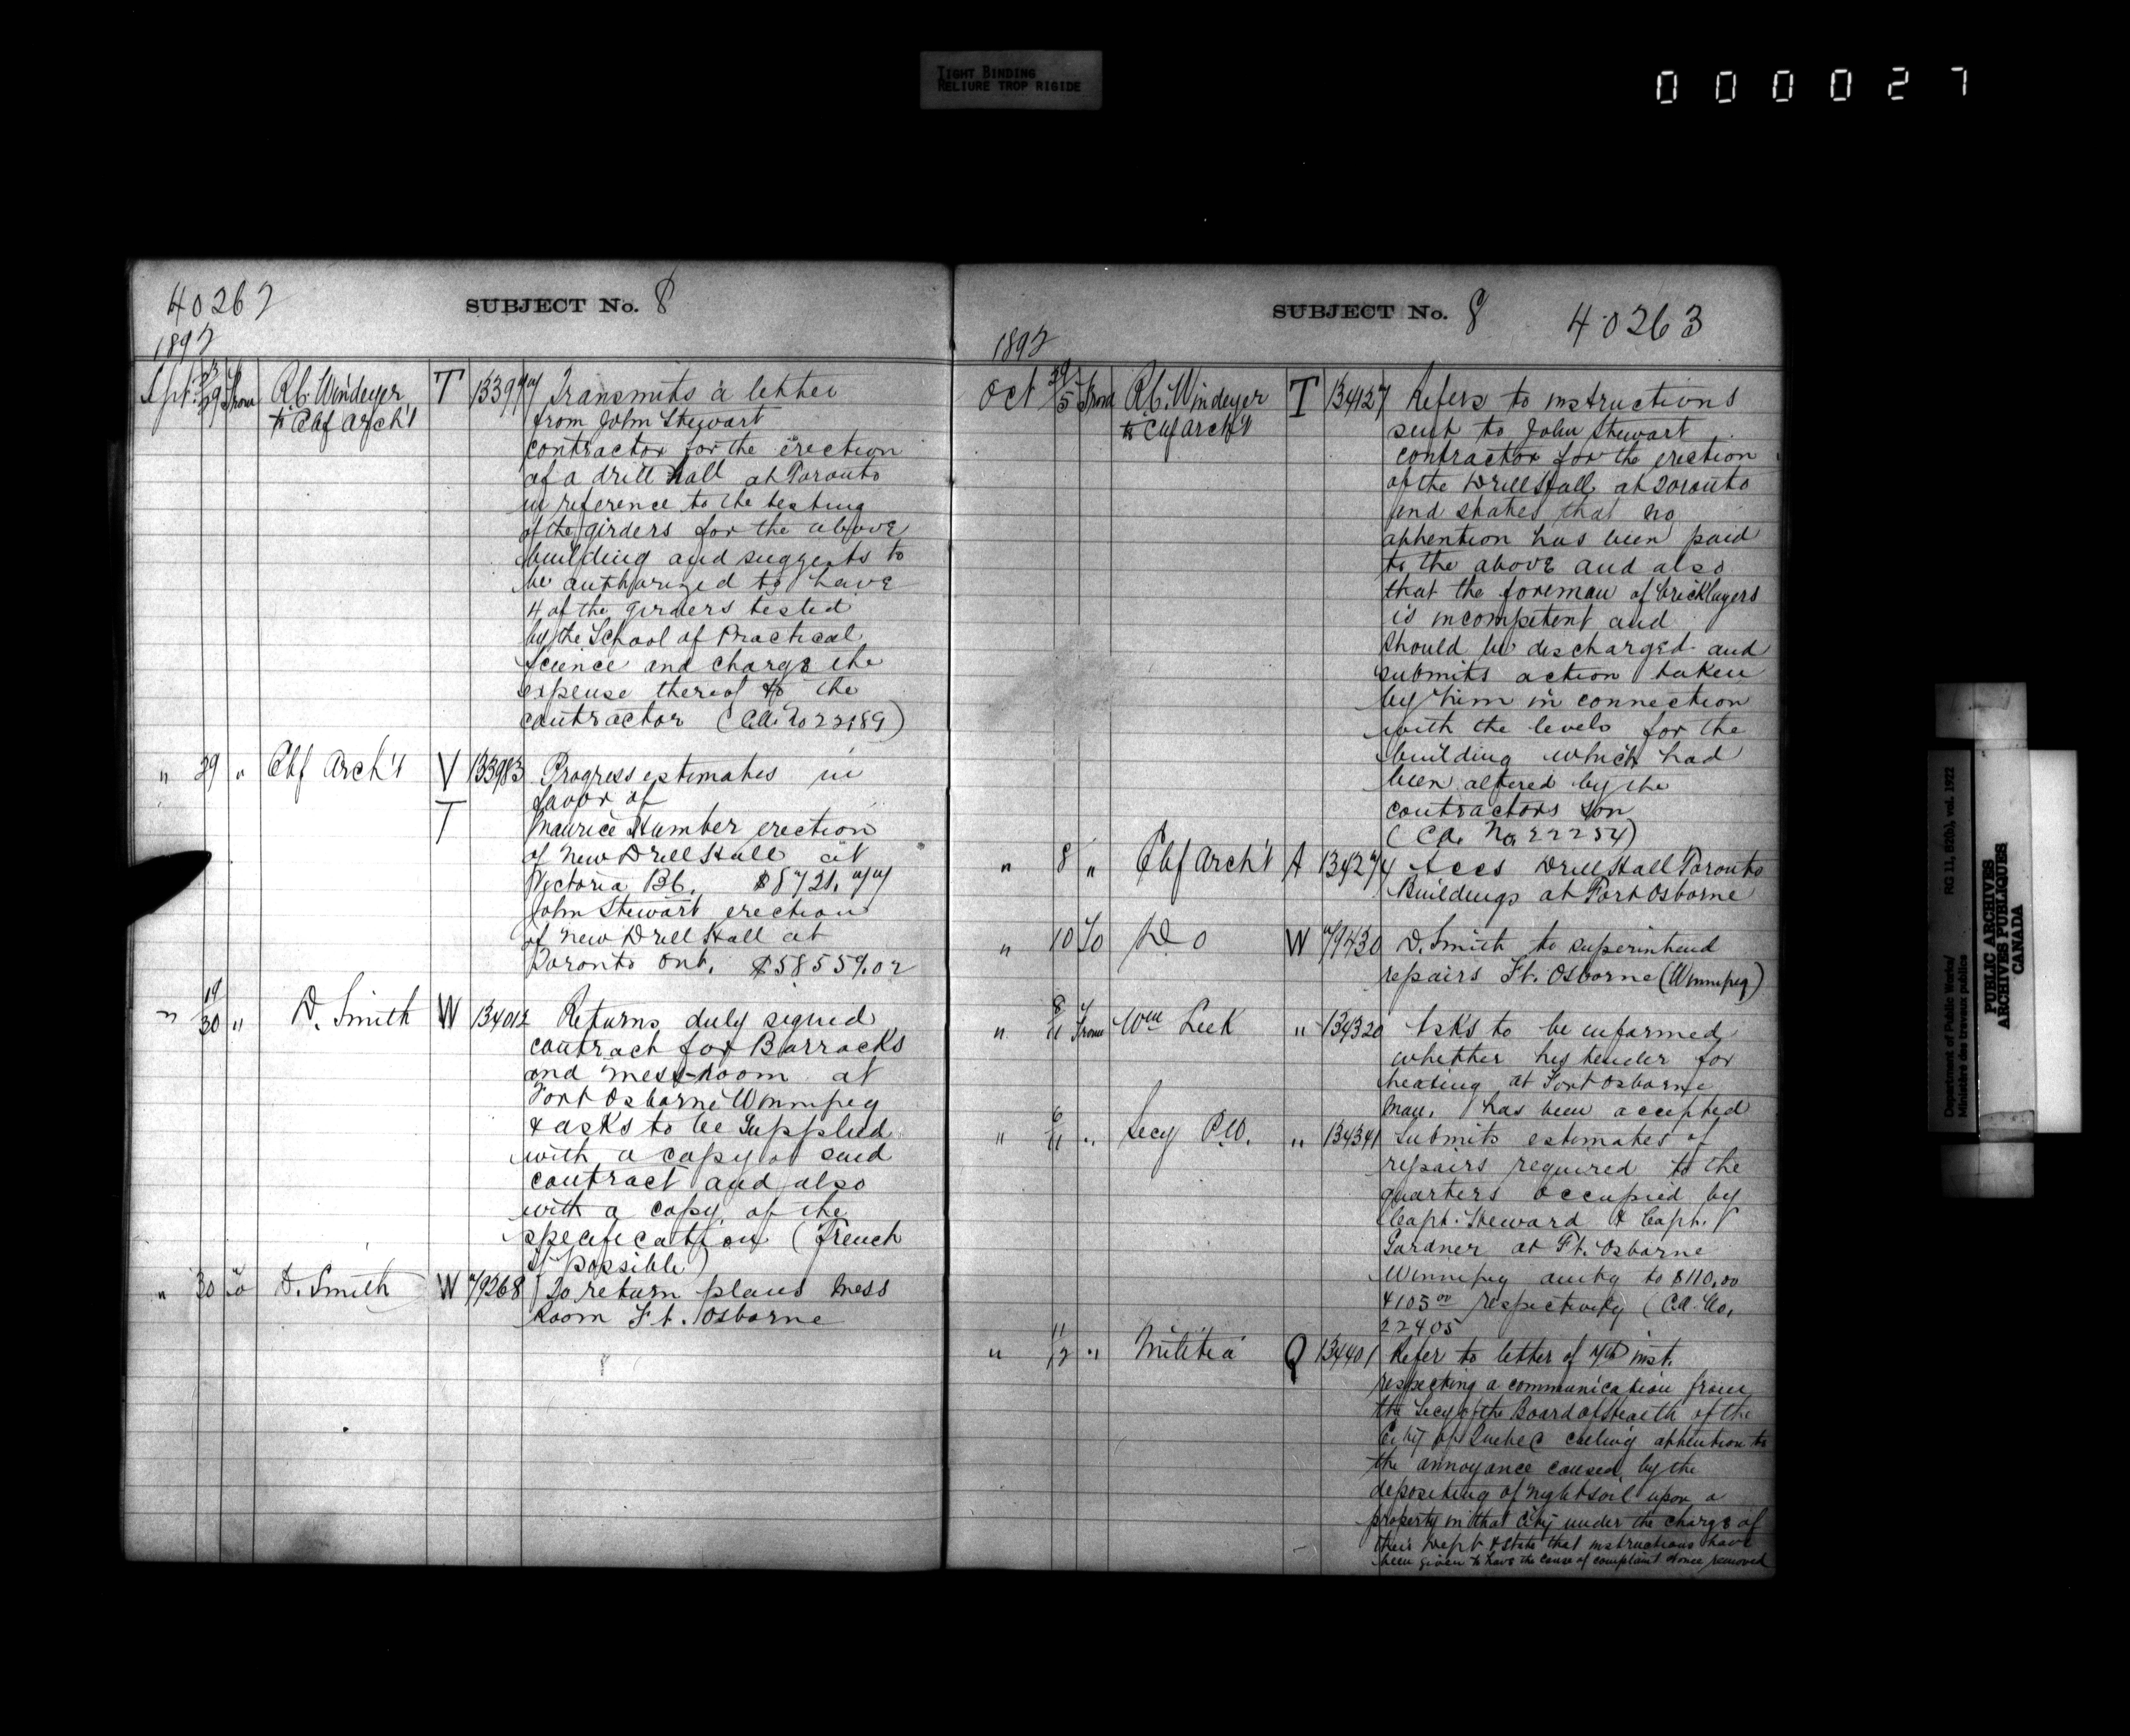 TIGHT BINDING
RELIURE TROP RIGIDE
000027
40262
SUBJECT No. 8
1892
Sept 23/29 From R.C. Windeyer T 133977 Transmits a letter
to Chf Arch't from John Stewart
contractor for the erection
of a drill hall at Toronto
in reference to the testing
of the girders for the above
building and suggests to
be authorized to have
4 of the girders tested
by the School of Practical
Science and charge the
expense thereof to the
contractor (C.A. No 22189)
" 29 " Chf Arch't V 133983 Progress estimates in
T favor of
Maurice Humber erection
of New Drill Hall at
Victoria B.C. $8721.77
John Stewart erection
of New Drill Hall at
Toronto Ont. $58557.02
" 19/30 " D. Smith W 134012 Returns duly signed
contract for Barracks
and mess-room at
Fort Osborne Winnipeg
& asks to be supplied
with a copy of said
contract and also
with a copy of the
specification (French
if possible)
" 30 To D. Smith W 79268 To return plans Mess
Room Ft. Osborne
SUBJECT No. 8
40263
1892
Oct /5 From R.C. Windeyer T 134127 Refers to instructions
to Chf Arch't sent to John Stewart
contractor for the erection
of the Drill Hall at Toronto
and states that no
attention has been paid
to the above and also
that the foreman of bricklayers
is incompetent and
should be discharged and
submits action taken
by him in connection
with the levels for the
building which had
been altered by the
contractors son
(C.A. No 22254)
" 8 " Chf Arch't A 134274 Accs Drill Hall Toronto
Buildings at Fort Osborne
" 10 To Do W 79430 D. Smith to superintend
repairs Ft. Osborne (Winnipeg)
" 8/11 From Wm Leek " 134320 Asks to be informed
whether his tender for
heating at Fort Osborne
Man. has been accepted
" 6/11 " Secy P.W. " 134341 Submits estimates of
repairs required to the
quarters occupied by
Capt. Steward & Capt.
Gardner at Ft. Osborne
Winnipeg amtg to $110.00
& 105 00 respectively (C.A. No.
22405
" 11/12 " Militia Q 134401 Refer to letter of 7th inst.
respecting a communication from
the Secy of the Board of Health of the
City of Quebec calling attention to
the annoyance caused by the
depositing of nightsoil upon a
property in that City under the charge of
their Dept & state that instructions have
been given to have the cause of complaint at once removed
Department of Public Works/ RG 11, B2(b), vol. 1922
Ministère des travaux publics
PUBLIC ARCHIVES
ARCHIVES PUBLIQUES
CANADA